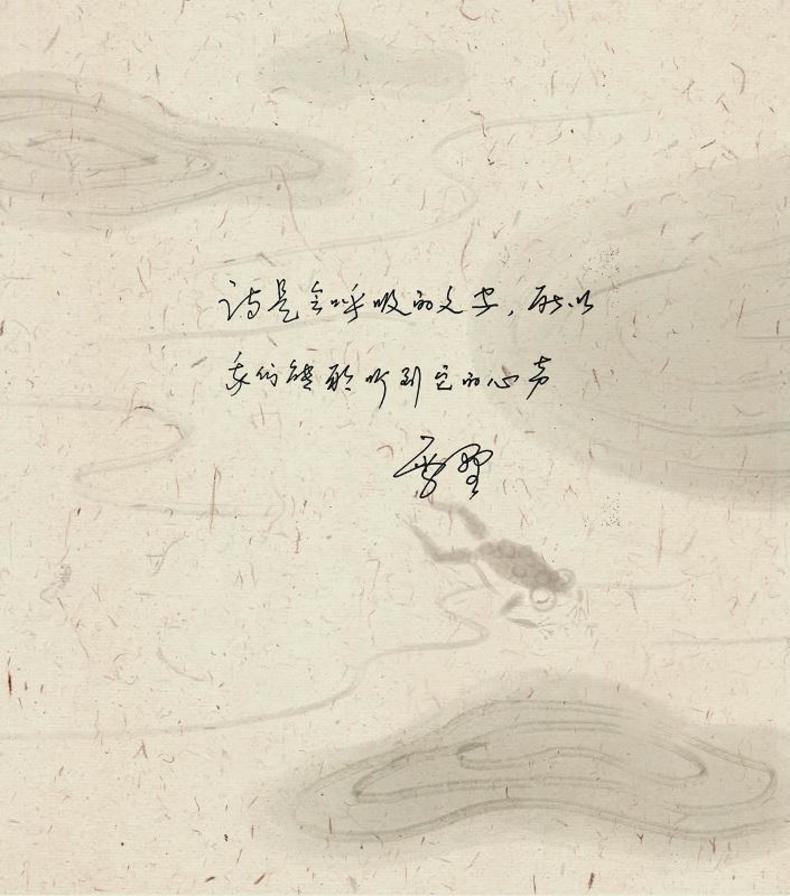 诗是会呼吸的文字,所以
我们能够听到它的心声
雪野